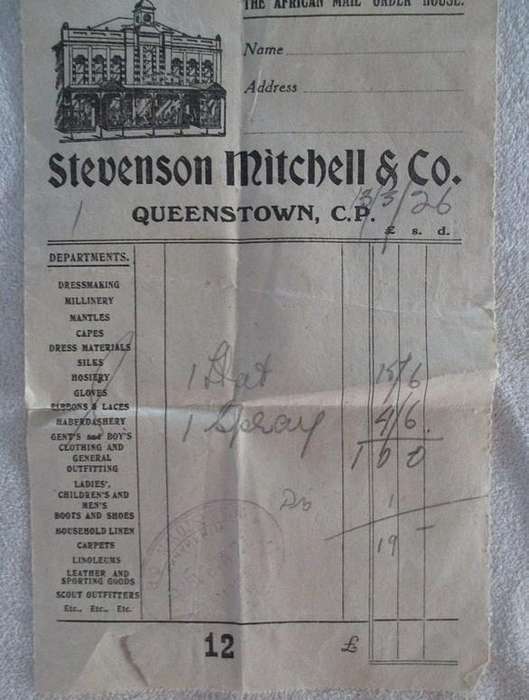 THE AFRICAN MAIL ORDER HOUSE.
Name
Address
Stevenson Mitchell & Co.
QUEENSTOWN, C.P.
3/3/26
£ s. d.
DEPARTMENTS.
DRESSMAKING
MILLINERY
MANTLES
CAPES
DRESS MATERIALS
SILKS
HOSIERY
GLOVES
RIBBONS & LACES
HABERDASHERY
GENT'S and BOY'S
CLOTHING AND
GENERAL
OUTFITTING
LADIES',
CHILDREN'S AND
MEN'S
BOOTS AND SHOES
HOUSEHOLD LINEN
CARPETS
LINOLEUMS
LEATHER AND
SPORTING GOODS
SCOUT OUTFITTERS
Etc., Etc., Etc.
1 Hat 15/6
1 Spray 4/6.
1 0 0
Dis 1
19 -
12 £